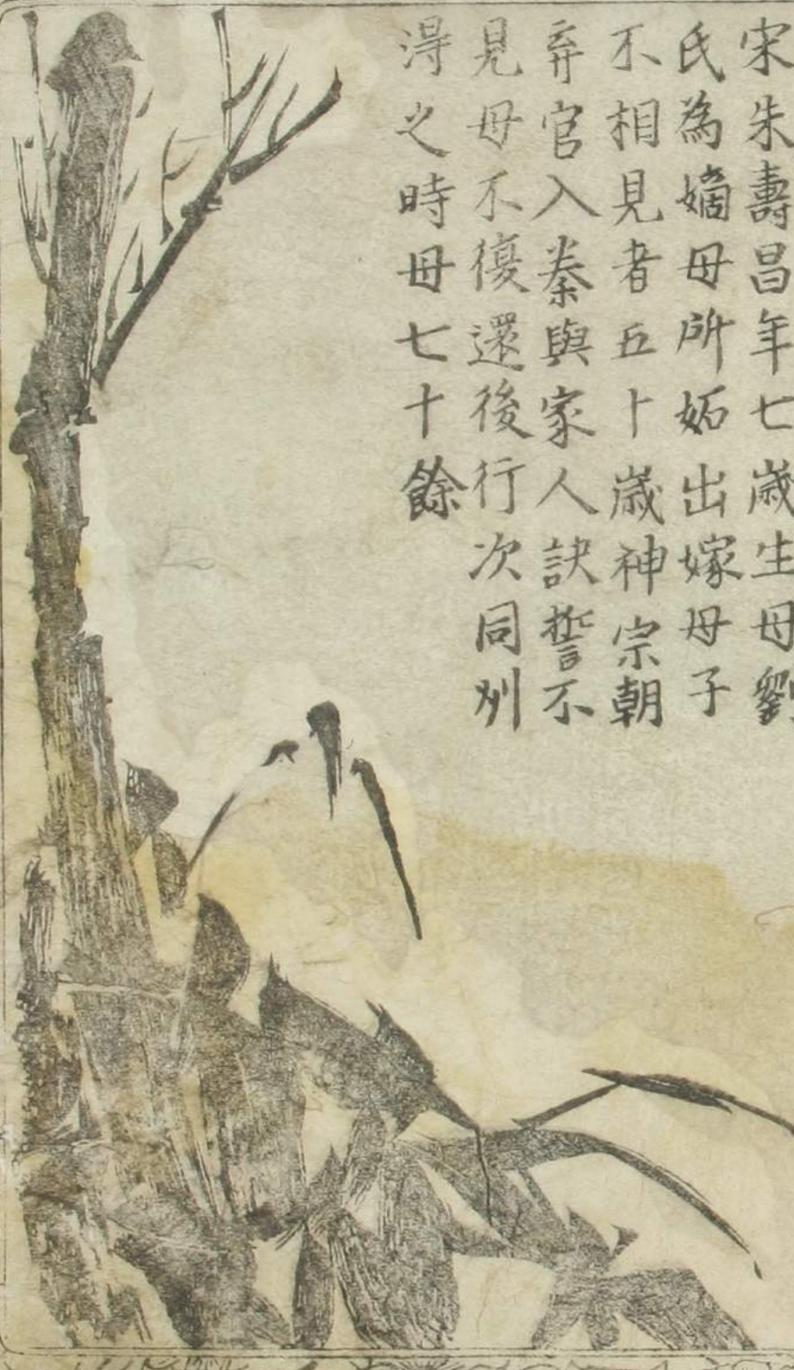 宋朱壽昌年七歳生母劉
氏為嫡母所妬出嫁母子
不相見者五十歳神宗朝
弃官入秦與家人訣誓不
見母不復還後行次同州
淂之時母七十餘